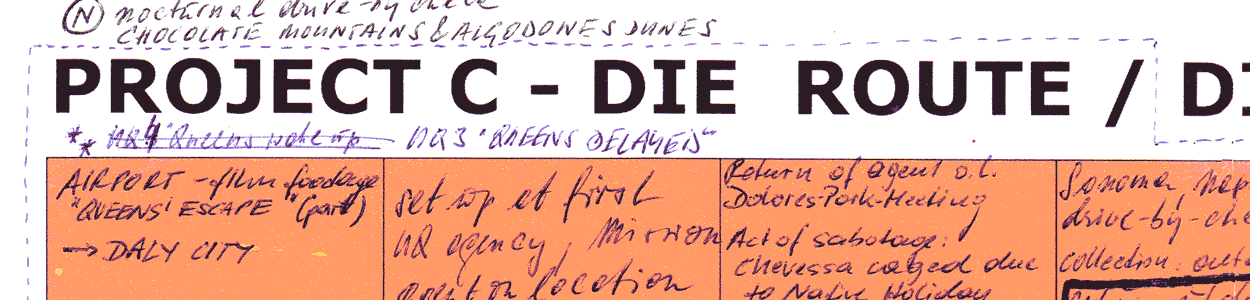 (N) nocturnal drive-by check
CHOCOLATE MOUNTAINS & ALGODONES DUNES
PROJECT C - DIE ROUTE / DI
** HQ4 "Queens wake up HQ3 "QUEENS DELAYED"
AIRPORT - film foodage
"QUEENS' ESCAPE" (part)
→ DALY CITY
set up at first
HQ agency, Mission
location
Return of agent o.l.
Dolores-Park-Meeting
Act of sabotage:
Chevessa caged due
to Native Holiday
Sonoma, Nap
drive-by-che
collection: